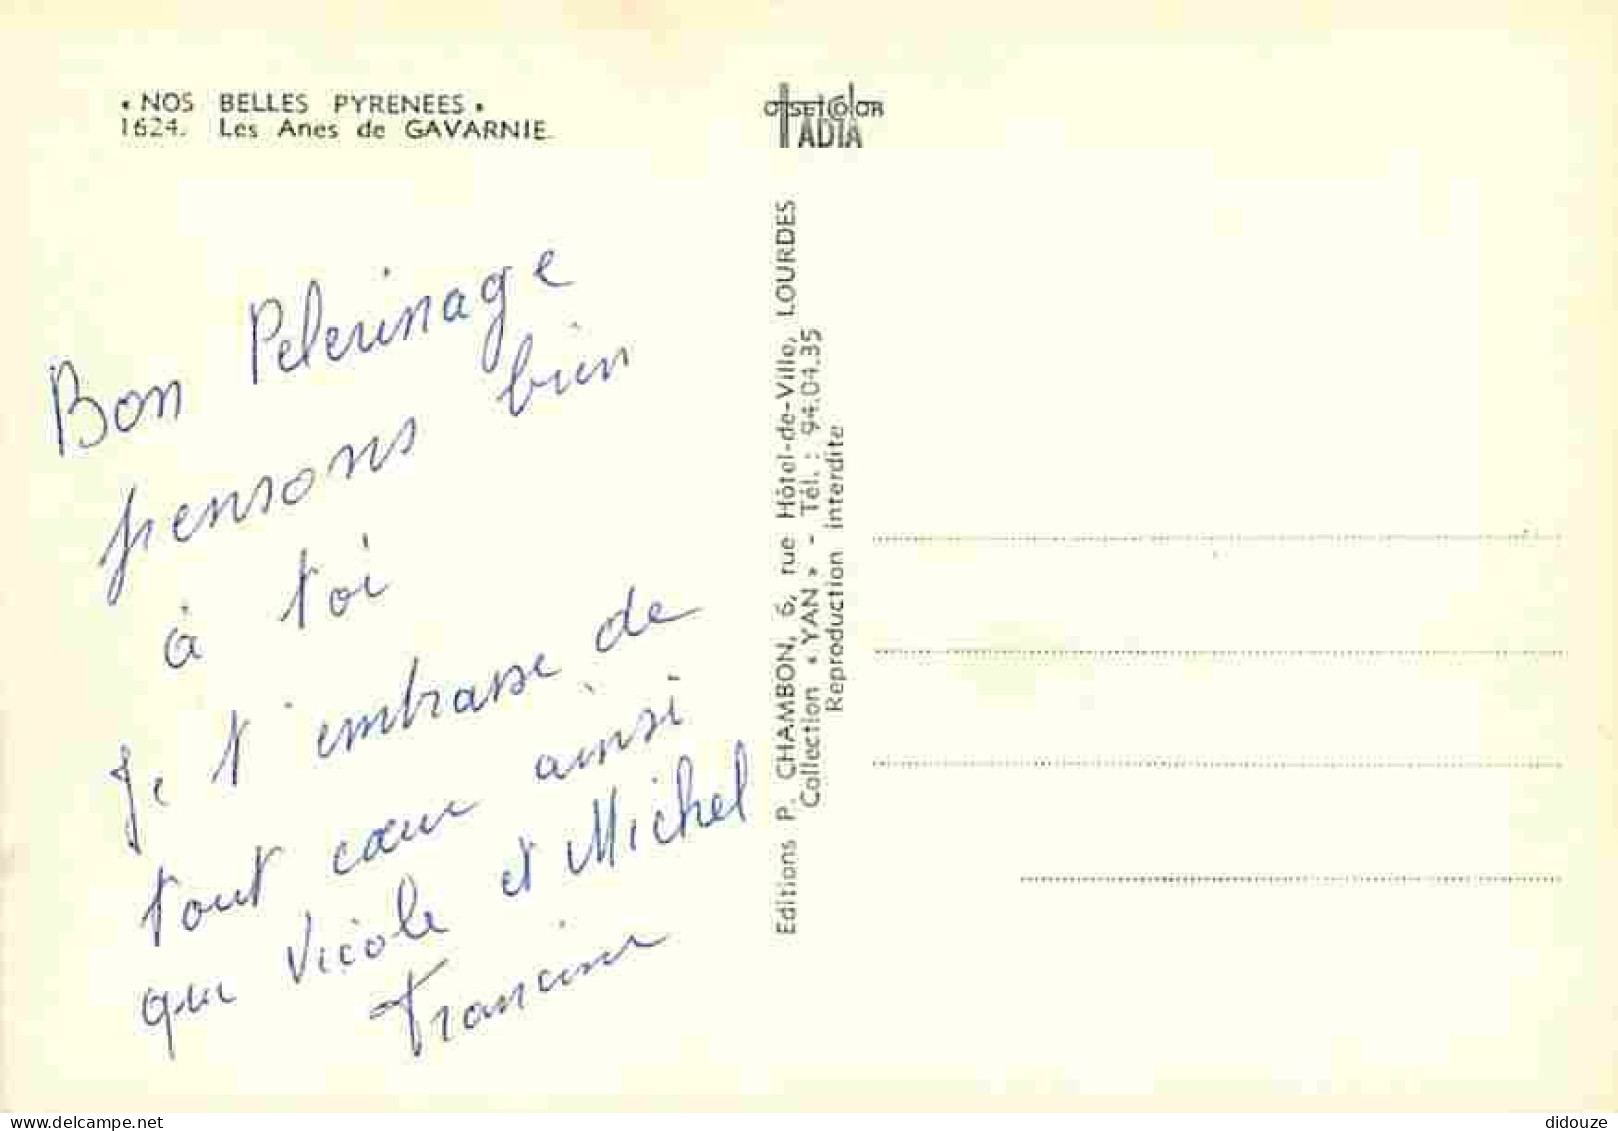 « NOS BELLES PYRENEES »
1624. Les Anes de GAVARNIE
OFFSETCOLOR
IADIA
Bon Pelerinage
pensons bien
à toi
Je t'embrasse de
tout cœur ainsi
que Nicole et Michel
Francine
Editions P. CHAMBON, 6, rue Hôtel-de-Ville, LOURDES
Collection « YAN » - Tél. : 94.04.35
Reproduction interdite
delcampe.net
didouze